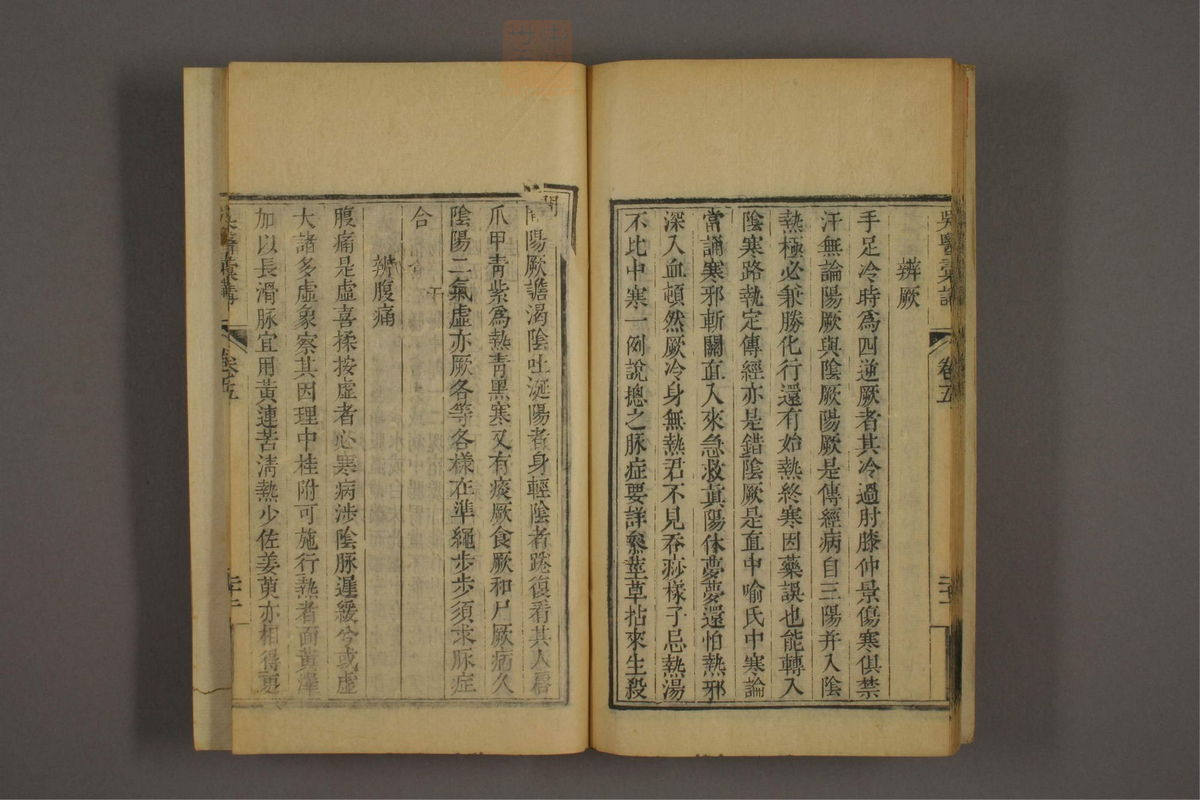 吳醫彙講
卷五
辨厥
手足冷時為四逆厥者其冷過肘膝仲景傷寒俱禁
汗無論陽厥與陰厥陽厥是傳經病自三陽并入陰
熱極必兼勝化行還有始熱終寒因藥誤也能轉入
陰寒路執定傳經亦是錯陰厥是直中喻氏中寒論
當誦寒邪斬關直入來急救真陽休夢夢還怕熱邪
深入血頓然厥冷身無熱君不見吞痧樣子忌熱湯
不比中寒一例說揔之脉症要詳叅莖草拈來生殺
間
陽厥譫渴陰吐涎陽者身輕陰者踡復看其人唇
爪甲青紫為熱青黑寒又有痰厥食厥和尸厥病久
陰陽二氣虛亦厥各等各樣在準繩步步須求脉症
合
辨腹痛
腹痛是虛喜揉按虛者必寒病涉陰脉遲緩兮或虛
大諸多虛象察其因理中桂附可施行熱者面黃澤
加以長滑脉宜用黃連苦清熱少佐姜萸亦相得更
吳醫彙講
卷五